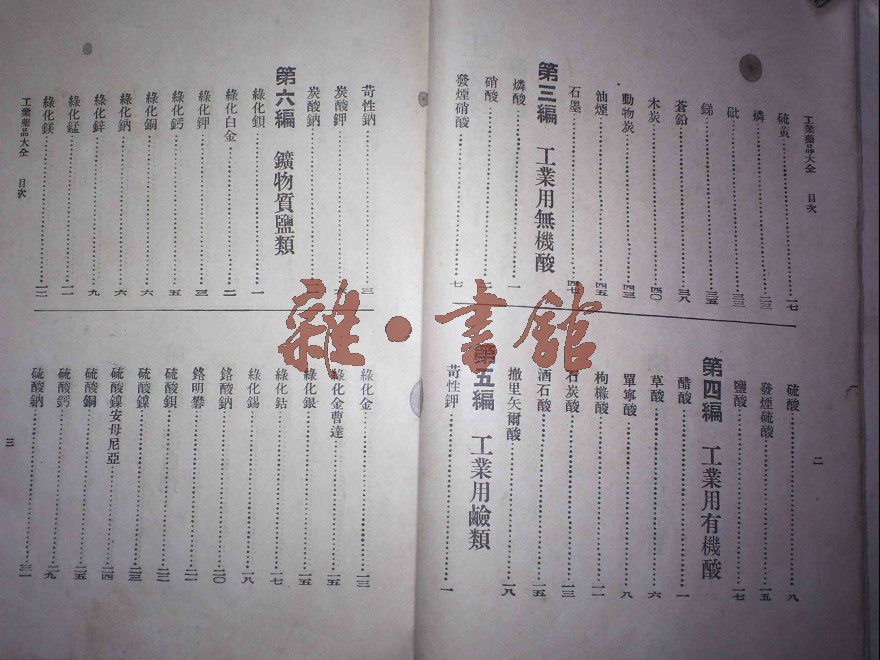 工業藥品大全 目次
二
硫黃 一七
燐 二三
砒 三三
銻 三五
蒼鉛 三八
木炭 四〇
動物炭 四三
油煙 四五
石墨 四七
第三編 工業用無機酸
燐酸 一
硝酸
發煙硝酸 七
硫酸 八
發煙硫酸 一五
鹽酸 一七
第四編 工業用有機酸
醋酸 一
草酸 六
單寧酸 八
枸櫞酸 一一
石炭酸 一三
酒石酸 一五
撤里矢爾酸 一八
第五編 工業用鹼類
苛性鉀 一
苛性鈉 三
炭酸鉀
炭酸鈉
第六編 鑛物質鹽類
綠化鋇 一
綠化白金 二
綠化鉀 三
綠化鈣 五
綠化銅 六
綠化鈉 六
綠化鋅 九
綠化錳 一一
綠化鎂 一二
綠化金 一三
綠化金曹達 一五
綠化銀 一五
綠化鈷 一七
綠化錫 一八
鉻酸鈉 二〇
鉻明礬 二一
硫酸鋇 二二
硫酸鎳 二三
硫酸鎳安母尼亞 二四
硫酸銅 二五
硫酸鈣 二九
硫酸鈉 三一
工業藥品大全 目次
三
雜·書館